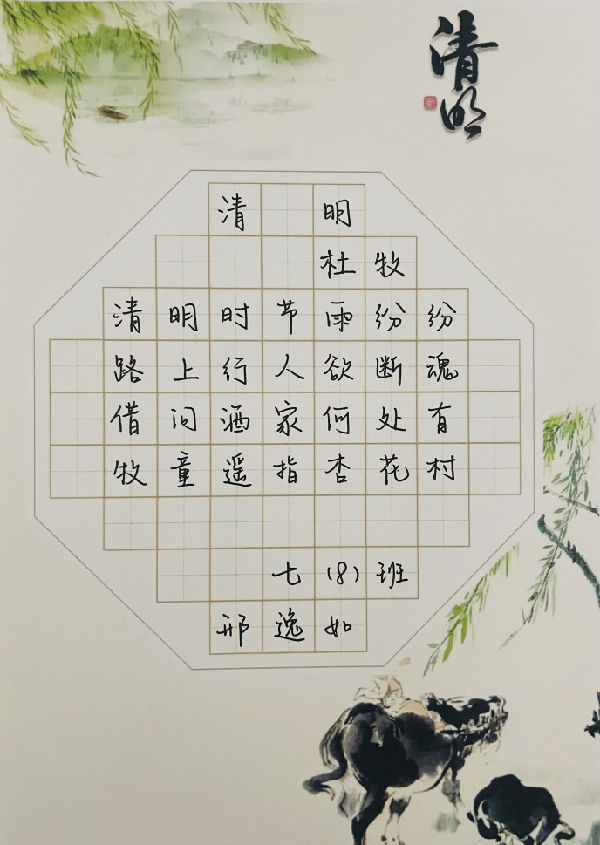 清明
清明
杜牧
清明时节雨纷纷
路上行人欲断魂
借问酒家何处有
牧童遥指杏花村
七(8)班
邢逸如